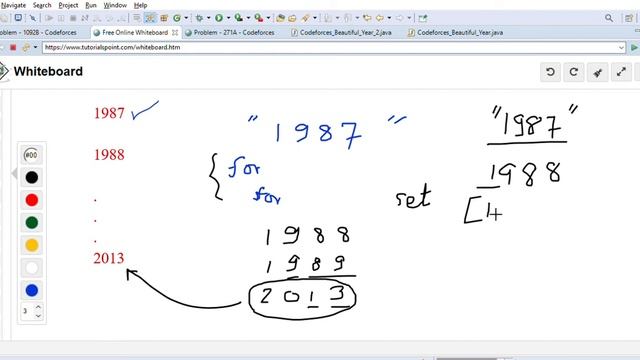 Navigate Search Project Run Window Help
Problem - 1092B - Codeforces
Free Online Whiteboard
Problem - 271A - Codeforces
Codeforces_Beautiful_Year_2.java
Codeforces_Beautiful_Year.java
https://www.tutorialspoint.com/whiteboard.htm
Whiteboard
1987
1988
.
.
.
2013
#00
3
" 1987 "
for
for
1988
1989
2013
set
"1987"
1988
[1,